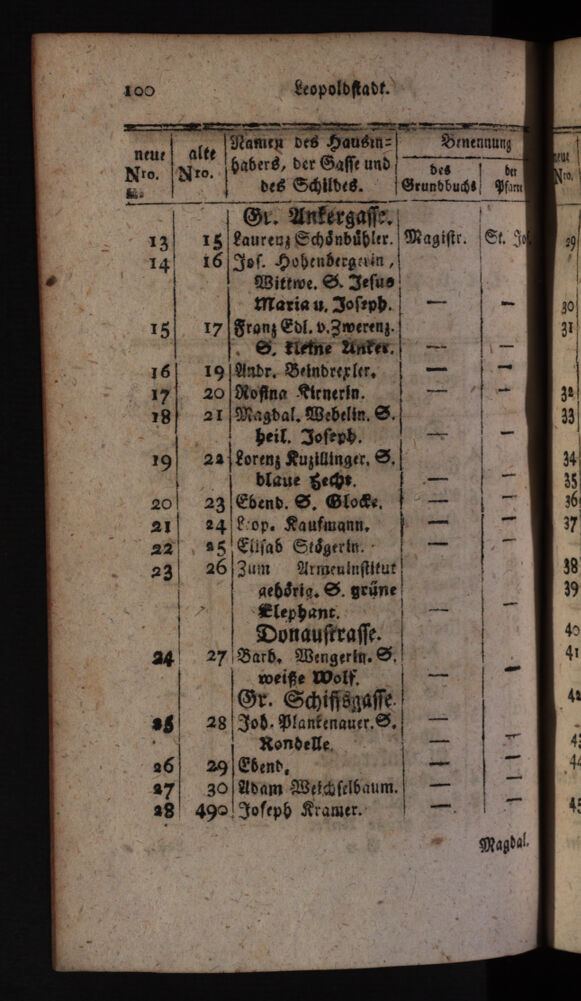 100 Leopoldstadt.
neue Nro. alte Nro. Namen des Hausin= Benennung
habers, der Gasse und des Grundbuchs der Pfarre
des Schildes.
Gr. Ankergasse.
13 15 Laurenz Schönbühler. Magistr. St. Jos
14 16 Jos. Hohenbergerin,
Wittwe. S. Jesus
Maria u. Joseph. — —
15 17 Franz Edl. v. Zwerenz.
S. kleine Anker. — —
16 19 Andr. Beindrexler. — —
17 20 Rosina Kirnerin. — —
18 21 Magdal. Webelin. S.
heil. Joseph. — —
19 22 Lorenz Kuzillinger. S.
blaue Hecht. — —
20 23 Ebend. S. Glocke. — —
21 24 Leop. Kaufmann. — —
22 25 Elisab Stögerin. — —
23 26 Zum Armeninstitut
gehörig. S. grüne
Elephant. — —
Donaustrasse.
24 27 Barb. Wengerin. S.
weiße Wolf. — —
Gr. Schiffsgasse.
25 28 Joh. Plankenauer. S.
Rondelle. — —
26 29 Ebend. — —
27 30 Adam Weichselbaum. — —
28 490 Joseph Kramer. — —
Magdal.
neue
Nro.
29
30
31
32
33
34
35
36
37
38
39
40
41